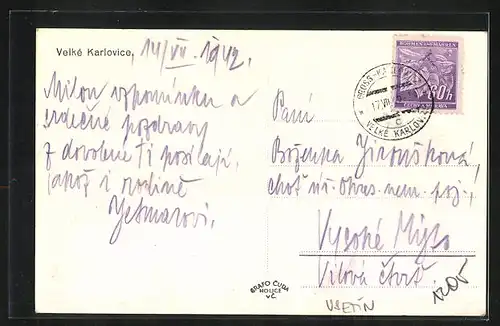 Velké Karlovice,
14/VII. 1942.
Milou vzpomínku a
srdečné pozdravy
z dovolené Ti posílají
jakož i rodině
Ješmarovi.
BÖHMEN UND MÄHREN
ČECHY A MORAVA
80h
GROSS-KARLOWITZ
17.VII.
VELKÉ KARLOVICE
c
Paní
Boženka Jiroušková,
choť úř. Okres. nem. poj.,
Vysoké Mýto
Vilová čtvrť.
GRAFO ČUDA
HOLICE
v Č.
VSETÍN